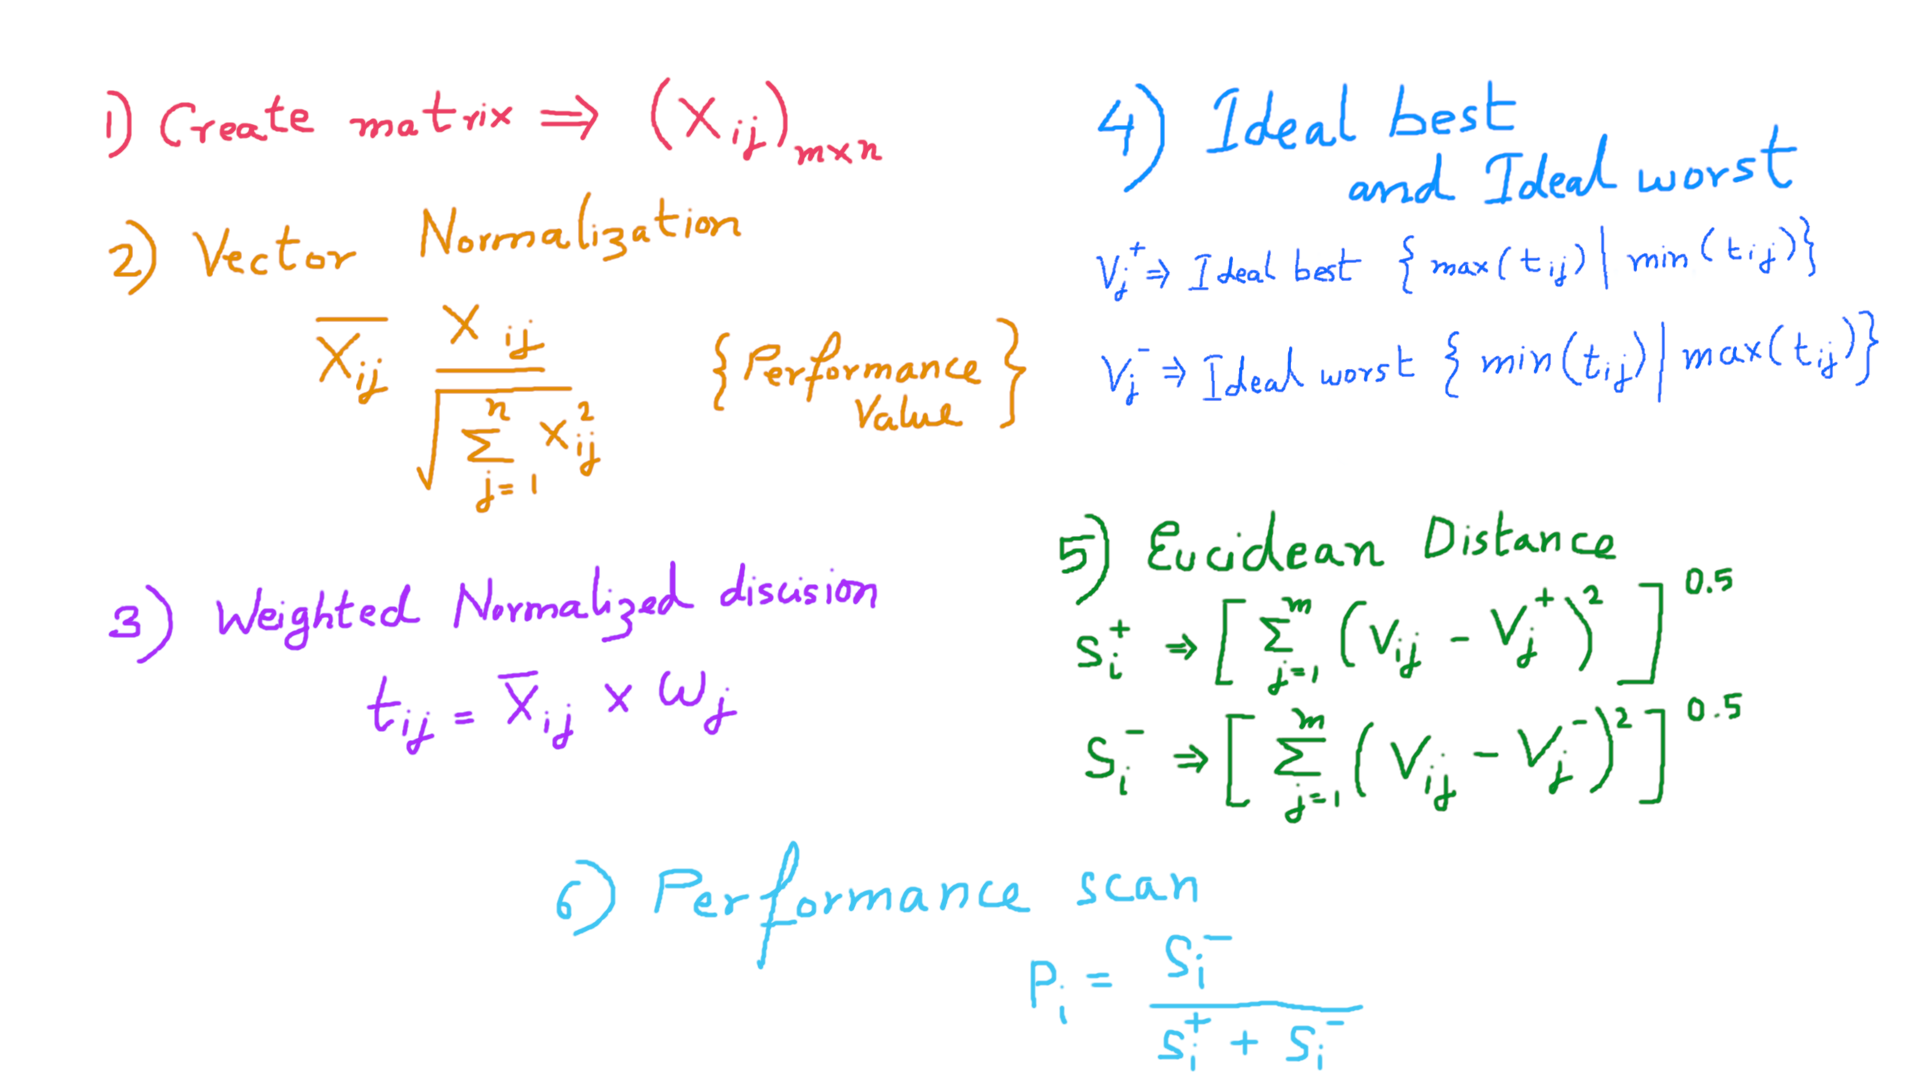 1) Create matrix ⇒ (X ij) m×n
2) Vector Normalization
X̅ij X ij / √ Σ n j=1 X²ij {Performance Value}
3) Weighted Normalized discision
tij = X̅ij × Wj
4) Ideal best
and Ideal worst
Vj⁺ ⇒ Ideal best {max(tij) | min(tij)}
Vj⁻ ⇒ Ideal worst {min(tij) | max(tij)}
5) Eucidean Distance
Si⁺ ⇒ [ Σ m j=1 (Vij - Vj⁺)² ] 0.5
Si⁻ ⇒ [ Σ m j=1 (Vij - Vj⁻)² ] 0.5
6) Performance scan
Pi = Si⁻ / Si⁺ + Si⁻